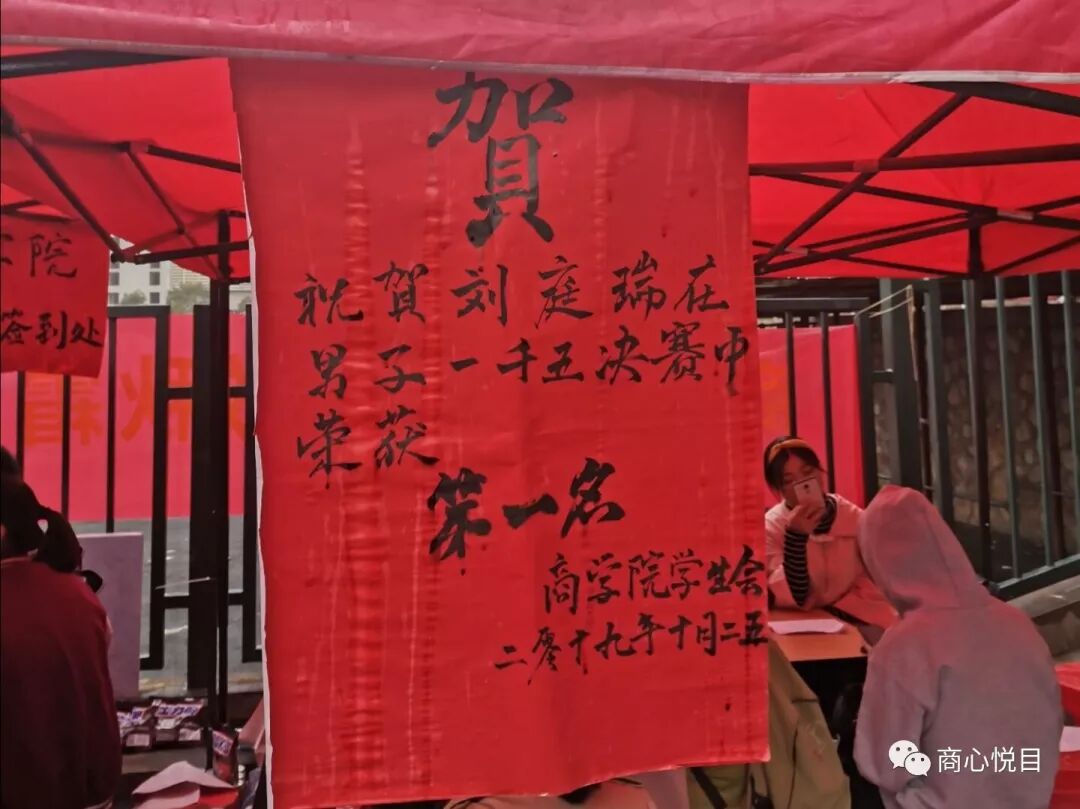 賀
祝賀刘庭瑞在
男子一千五决赛中
荣获
第一名
商学院学生会
二零十九年十月二五
工院
签到处
商心悦目